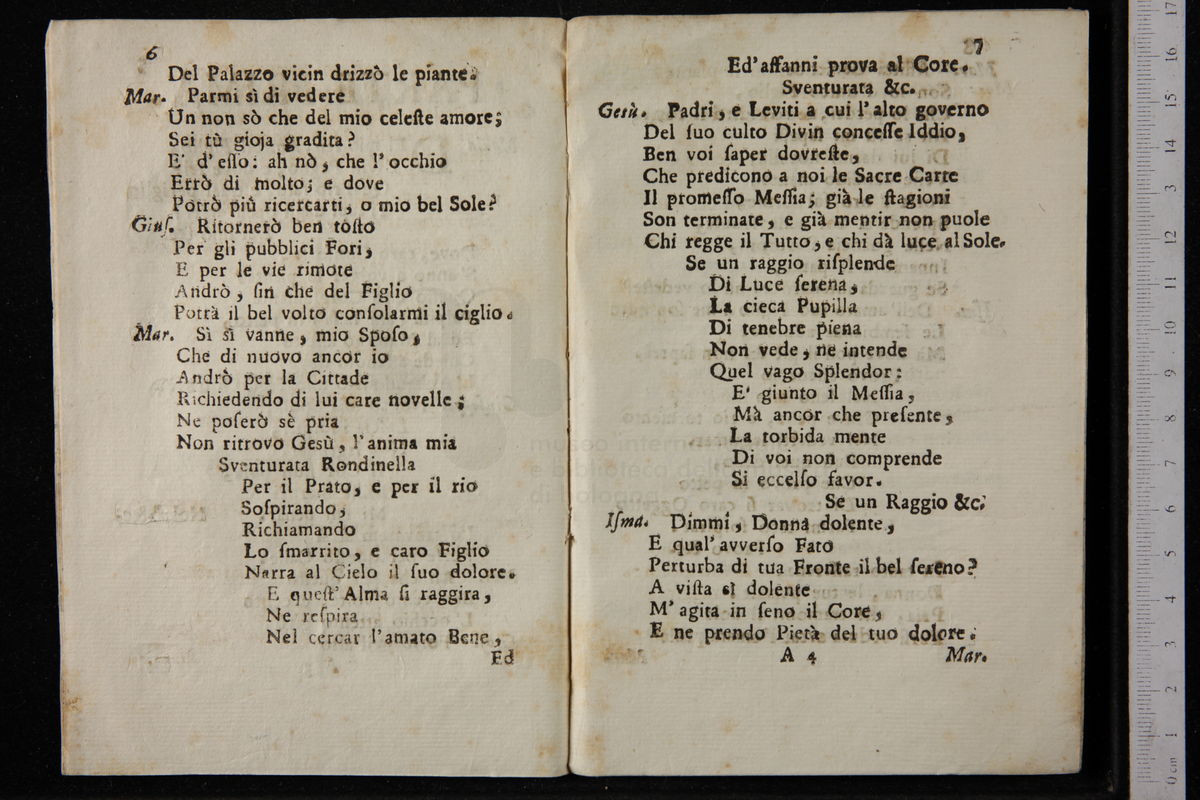 6
Del Palazzo vicin drizzò le piante.
Mar. Parmi sì di vedere
Un non sò che del mio celeſte amore;
Sei tù gioja gradita?
E' d'eſſo: ah nò, che l'occhio
Errò di molto; e dove
Potrò più ricercarti, o mio bel Sole?
Giuſ. Ritornerò ben toſto
Per gli pubblici Fori,
E per le vie rimote
Andrò, ſin che del Figlio
Potrà il bel volto conſolarmi il ciglio.
Mar. Sì sì vanne, mio Spoſo,
Che di nuovo ancor io
Andrò per la Cittade
Richiedendo di lui care novelle;
Ne poſerò sè pria
Non ritrovo Gesù, l'anima mia
Sventurata Rondinella
Per il Prato, e per il rio
Soſpirando,
Richiamando
Lo ſmarrito, e caro Figlio
Narra al Cielo il ſuo dolore.
E queſt'Alma ſi raggira,
Ne reſpira
Nel cercar l'amato Bene,
Ed
7
Ed'affanni prova al Core.
Sventurata &c.
Gesù. Padri, e Leviti a cui l'alto governo
Del ſuo culto Divin conceſſe Iddio,
Ben voi ſaper dovreſte,
Che predicono a noi le Sacre Carte
Il promeſſo Meſſia; già le ſtagioni
Son terminate, e già mentir non puole
Chi regge il Tutto, e chi dà luce al Sole.
Se un raggio riſplende
Di Luce ſerena,
La cieca Pupilla
Di tenebre piena
Non vede, ne intende
Quel vago Splendor:
E' giunto il Meſſia,
Mà ancor che preſente,
La torbida mente
Di voi non comprende
Si eccelſo favor.
Se un Raggio &c.
Iſma. Dimmi, Donna dolente,
E qual'avverſo Fato
Perturba di tua Fronte il bel ſereno?
A viſta sì dolente
M'agita in ſeno il Core,
E ne prendo Pietà del tuo dolore.
A 4 Mar.
museo internaz
e biblioteca della
di bologna
0 cm 1 2 3 4 5 6 7 8 9 10 11 12 3 14 15 16 17